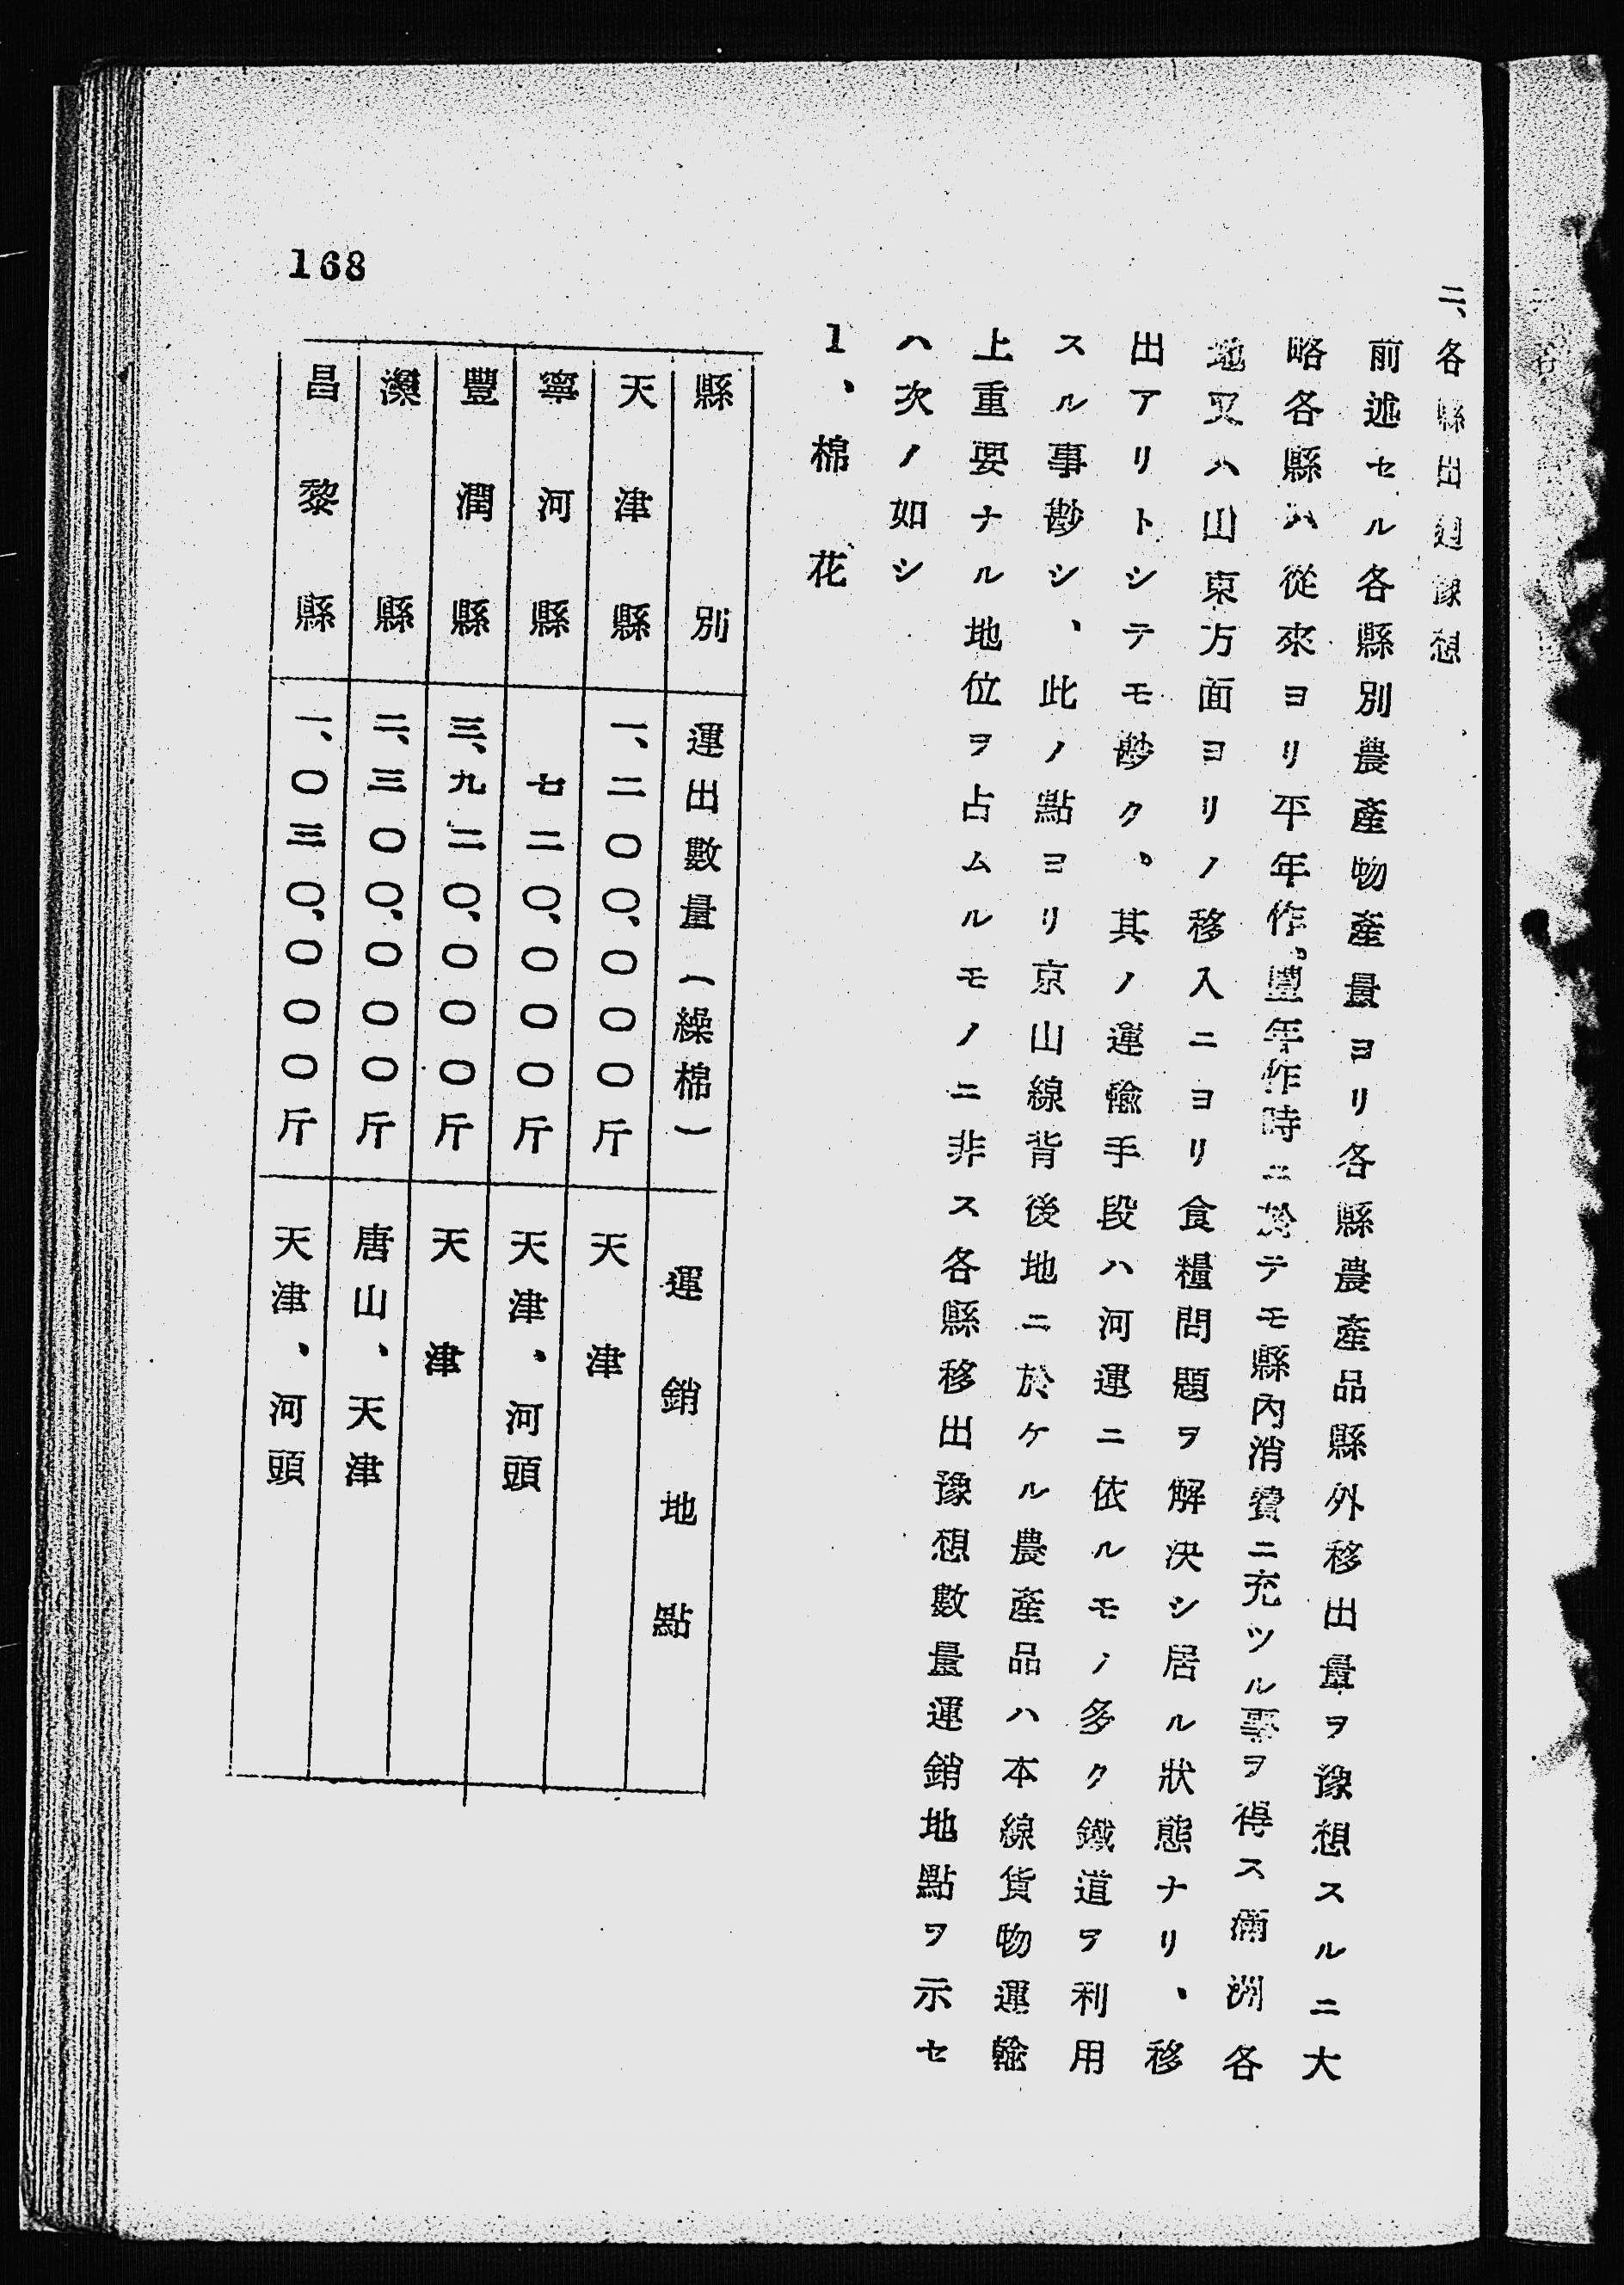 二、各縣出廻豫想
前述セル各縣別農產物產量ヨリ各縣農產品縣外移出量ヲ豫想スルニ大
略各縣ハ從來ヨリ平年作、豐年作時ニ於テモ縣內消費ニ充ツル事ヲ得ス滿洲各
地又ハ山東方面ヨリノ移入ニヨリ食糧問題ヲ解決シ居ル狀態ナリ、移
出アリトシテモ尠ク、其ノ運輸手段ハ河運ニ依ルモノ多ク鐵道ヲ利用
スル事尠シ、此ノ點ヨリ京山線背後地ニ於ケル農產品ハ本線貨物運輸
上重要ナル地位ヲ占ムルモノニ非ス各縣移出豫想數量運銷地點ヲ示セ
ハ次ノ如シ
1、棉花
縣別 運出數量(繰棉) 運銷地點
天津縣 一、二〇〇、〇〇〇斤 天津
寧河縣 七二〇、〇〇〇斤 天津、河頭
豐潤縣 三、九二〇、〇〇〇斤 天津
灤縣 二、三〇〇、〇〇〇斤 唐山、天津
昌黎縣 一、〇三〇、〇〇〇斤 天津、河頭
168